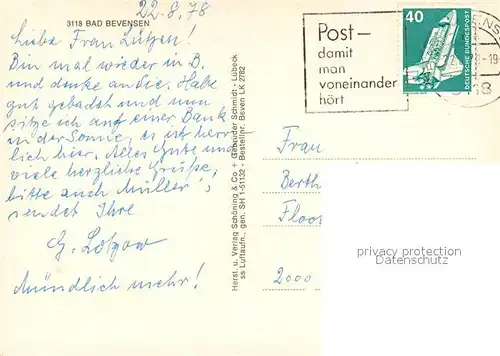 22.8.78
3118 BAD BEVENSEN
Liebe Frau Lützen!
Bin mal wieder in B.
und denke an Sie. Habe
gut gebadet und nun
sitze ich auf einer Bank
in der Sonne, es ist herr
lich hier. Alles Gute und
viele herzliche Grüße,
bitte auch Müller's,
sendet Ihre
G. Lotzow
Mündlich mehr!
Herst. u. Verlag Schöning & Co + Gebrüder Schmidt - Lübeck
ss Luftaufn., gen. SH 1-51132 - Bestellnr. Beven LK 2782
Post –
damit
man
voneinander
hört
40
DEUTSCHE BUNDESPOST
Frau
Berth
Floo
2000
privacy protection
Datenschutz